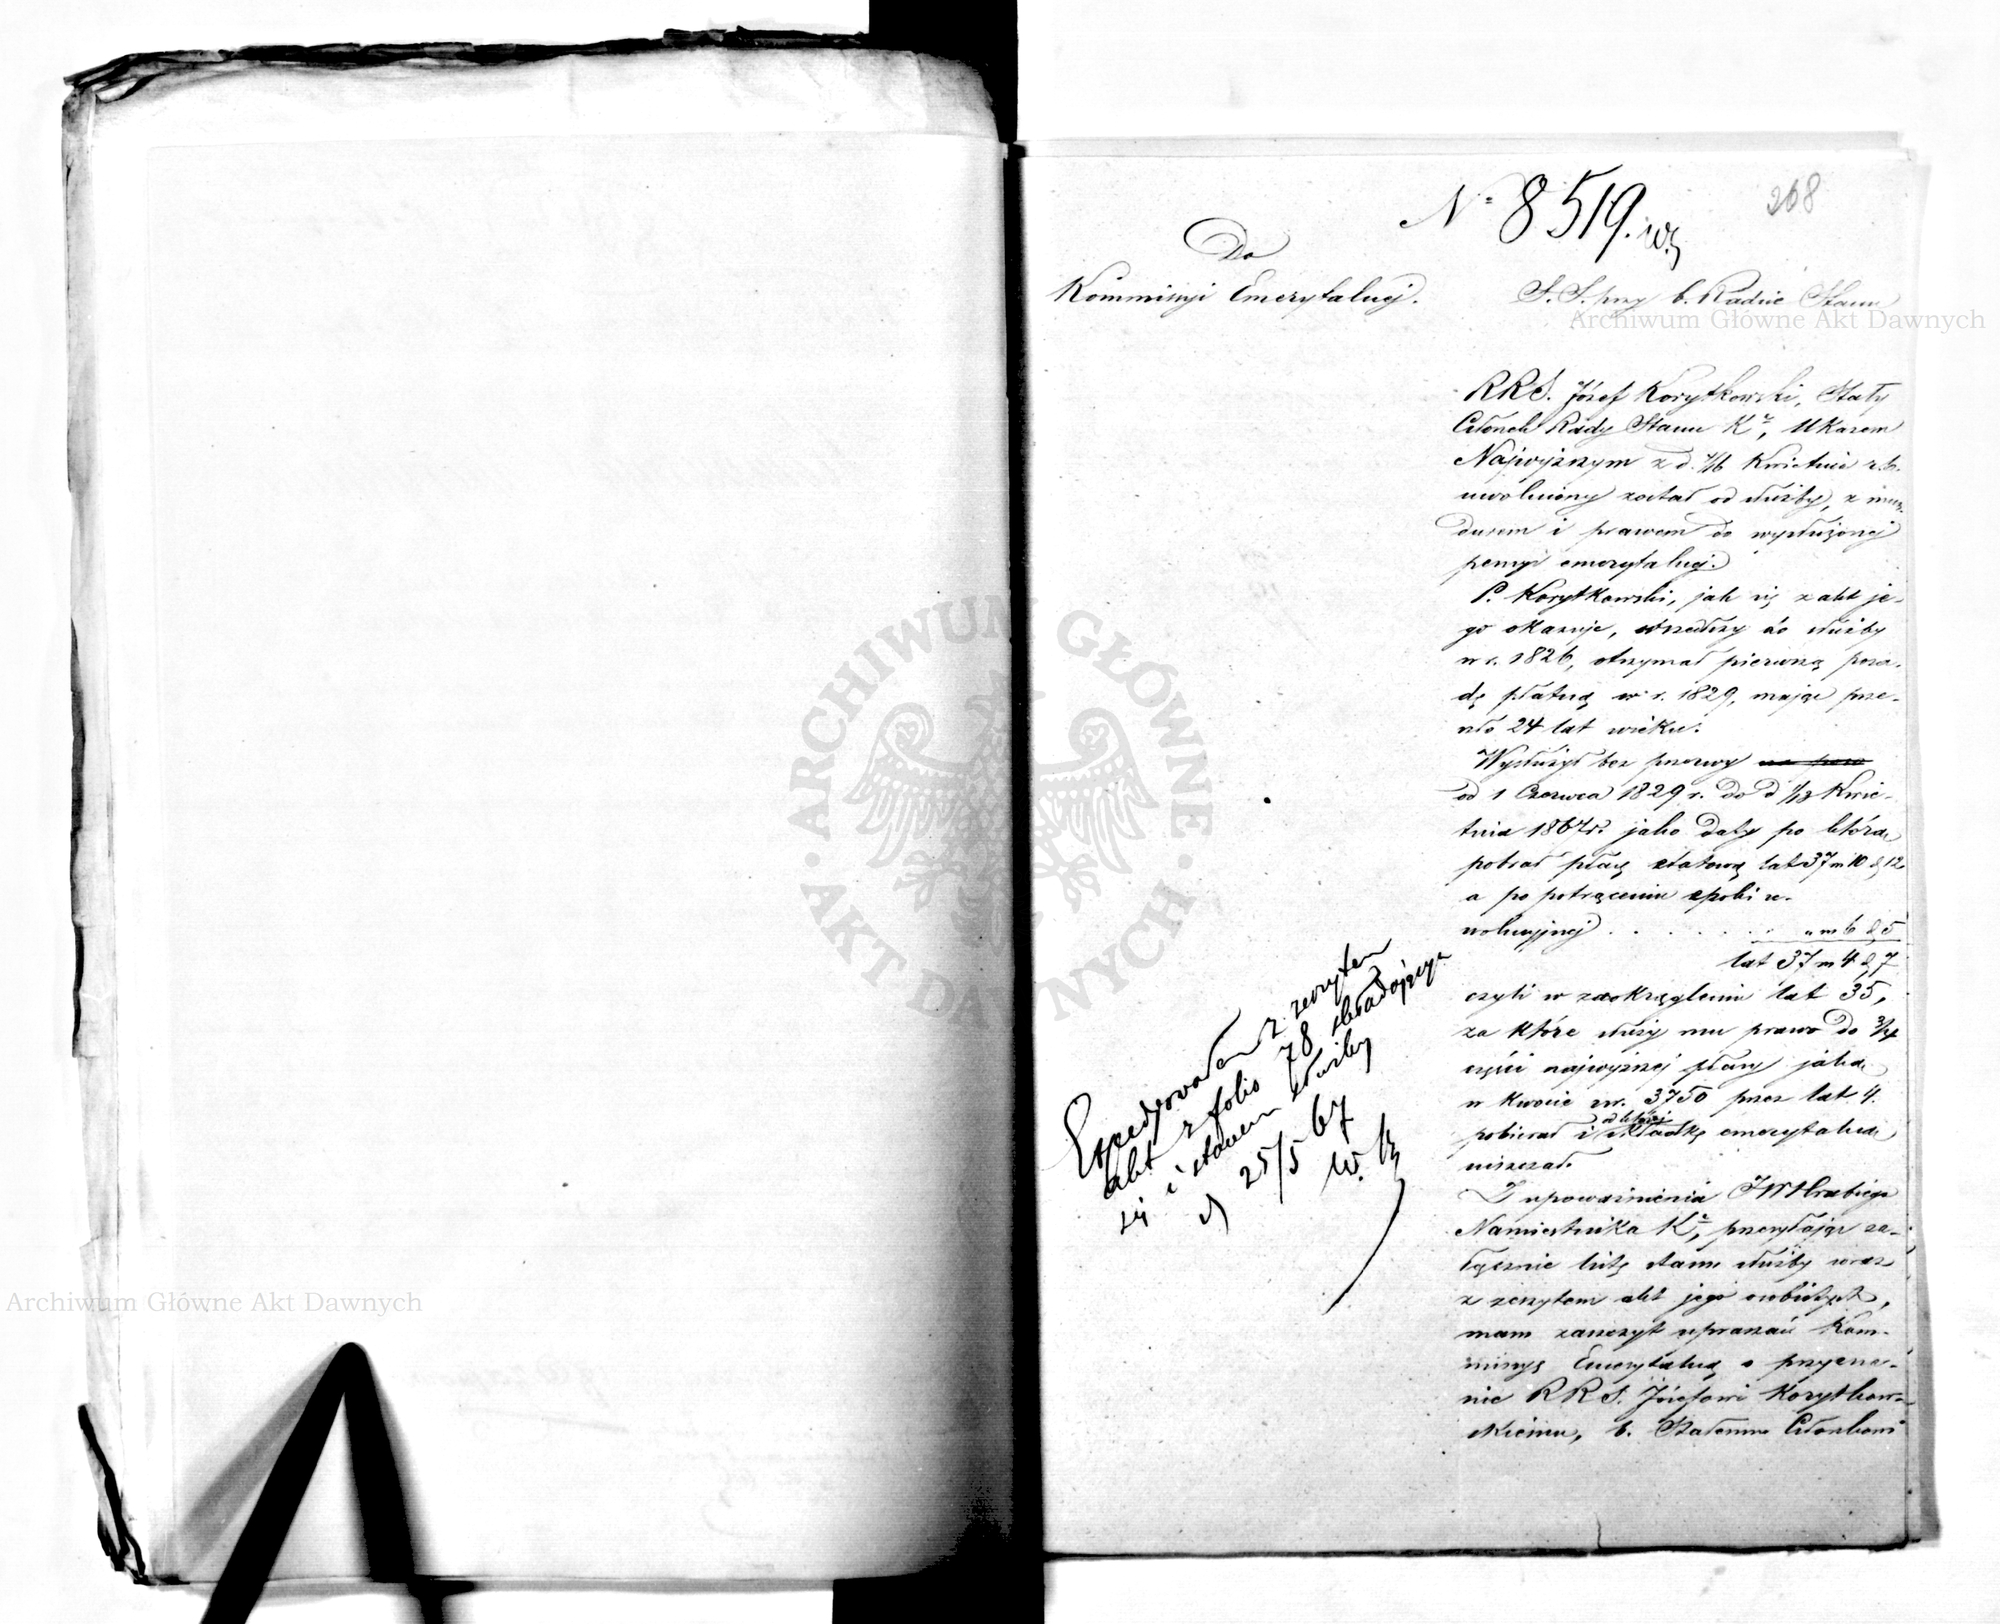 208
Nº 8519. w.
Do
Kommissyi Emerytalnej.
S. S. przy b. Radzie Stanu
RRS. Józef Korytkowski, Stały
Członek Rady Stanu Kr, Ukazem
Najwyższym z d. 4/16 Kwietnia r. b.
uwolniony został od służby, z mun-
durem i prawem do wysłużonej
pensyi emerytalnej.
P. Korytkowski, jak się z akt je-
go okazuje, wszedłszy do służby
w r. 1826, otrzymał pierwszą posa-
dę płatną w r. 1829, mając prze-
szło 24 lat wieku.
Wysłużył bez przerwy
od 1 Czerwca 1829 r. do d 1/13 Kwie-
tnia 1867 r. jako daty po którą
pobrał płacę etatową lat 37 m 10 d 12
a po potrąceniu epoki re-
wolucyjnej . . . . . . . „ m 6 d 5
lat 37 m 4 d 7
czyli w zaokrągleniu lat 35,
za które służy mu prawo do 3/4
części najwyższej płacy jaką
w kwocie rs. 3750 przez lat 4
pobierał i od której składkę emerytalną
uiszczał.
Z upoważnienia JW Hrabiego
Namiestnika Kr, przesyłając za-
łącznie listę stanu służby wraz
z zeszytem akt jego osobistych,
mam zaszczyt upraszać Kom-
missyę Emerytalną o przyzna-
nie RRS. Józefowi Korytkow-
skiemu, b. Stałemu Członkowi
Expedjowałem z zeszytem
akt z folio 78 składającym
się i stanem służby
d 25/5 67
w.
Archiwum Główne Akt Dawnych
Archiwum Główne Akt Dawnych
ARCHIWUM GŁÓWNE · AKT DAWNYCH ·